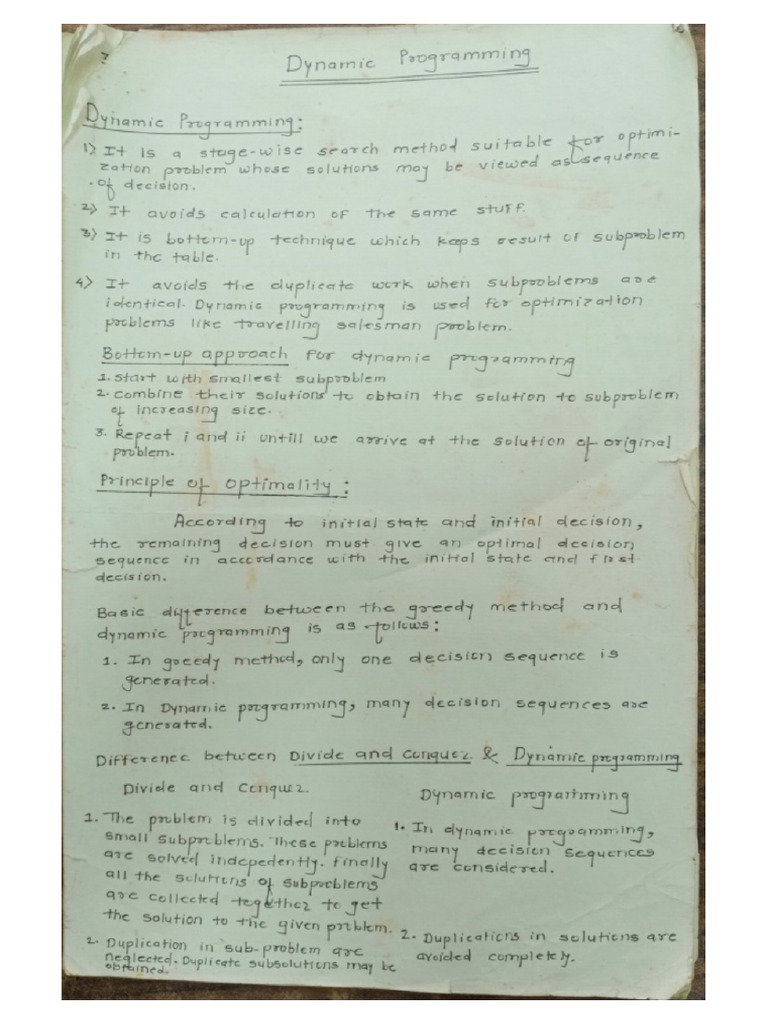 Dynamic Programming
Dynamic Programming:
1) It is a stage-wise search method suitable for optimi-
zation problem whose solutions may be viewed as sequence
of decision.
2) It avoids calculation of the same stuff.
3) It is bottom-up technique which keeps result of subproblem
in the table.
4) It avoids the duplicate work when subproblems are
identical. Dynamic programming is used for optimization
problems like travelling salesman problem.
Bottom-up approach for dynamic programming
1. Start with smallest subproblem
2. Combine their solutions to obtain the solution to subproblem
of increasing size.
3. Repeat i and ii untill we arrive at the solution of original
problem.
Principle of optimality:
According to initial state and initial decision,
the remaining decision must give an optimal decision
sequence in accordance with the initial state and first
decision.
Basic difference between the greedy method and
dynamic programming is as follows:
1. In greedy method, only one decision sequence is
generated.
2. In Dynamic programming, many decision sequences are
generated.
Difference between Divide and Conquer & Dynamic programming
Divide and Conquer.
1. The problem is divided into
small subproblems. These problems
are solved indepedently. Finally
all the solutions of subproblems
are collected together to get
the solution to the given problem.
2. Duplication in sub-problem are
neglected. Duplicate subsolutions may be
obtained.
Dynamic programming
1. In dynamic programming,
many decision sequences
are considered.
2. Duplications in solutions are
avoided completely.